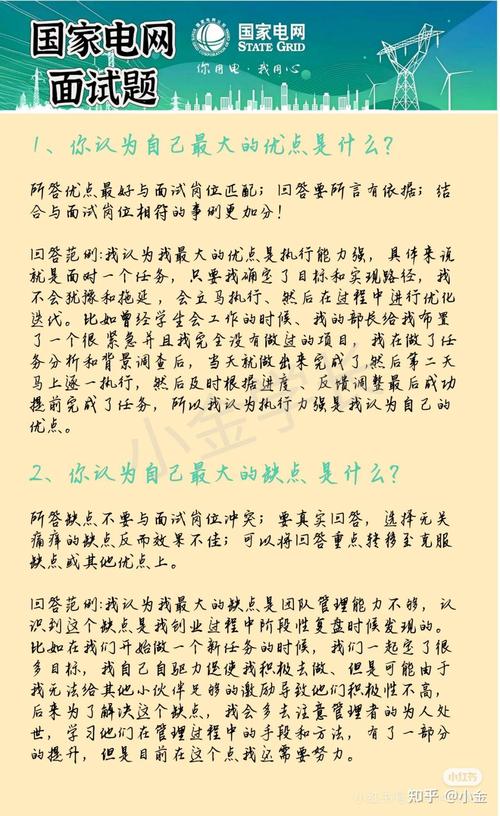 国家电网
面试题
国家电网
STATE GRID
你用电·我用心
1、你认为自己最大的优点是什么？
所答优点最好与面试岗位匹配；回答要所言有依据；结
合与面试岗位相符的事例更加分！
回答范例：我认为我最大的优点是执行能力强，具体来说
就是面对一个任务，只要我确定了目标和实现路径，我
不会犹豫和拖延，会立马执行、然后在过程中进行优化
迭代。比如曾经学生会工作的时候、我的部长给我布置
了一个很紧急并且我完全没有做过的项目，我在做了任
务分析和背景调查后，当天就做出来完成了，然后第二天
马上逐一执行，然后及时根据进度、反馈调整最后成功
提前完成了任务，所以我认为执行力强是我认为自己的
优点。
2、你认为自己最大的缺点是什么？
所答缺点不要与面试岗位冲突；要真实回答，选择无关
痛痒的缺点反而效果不佳；可以将回答重点转移至克服
缺点或其他优点上。
回答范例：我认为我最大的缺点是团队管理能力不够，认
识到这个缺点是我创业过程中阶段性复盘时候发现的。
比如在我们开始做一个新任务的时候，我们一起定了很
多目标，我自己自驱力促使我积极去做、但是可能由于
我无法给其他小伙伴足够的激励导致他们积极性不高，
后来为了解决这个缺点，我会多去注意管理者的为人处
世，学习他们在管理过程中的手段和方法，有了一部分
的提升，但是目前在这个点我还需要努力。
小红书
知乎 @小金